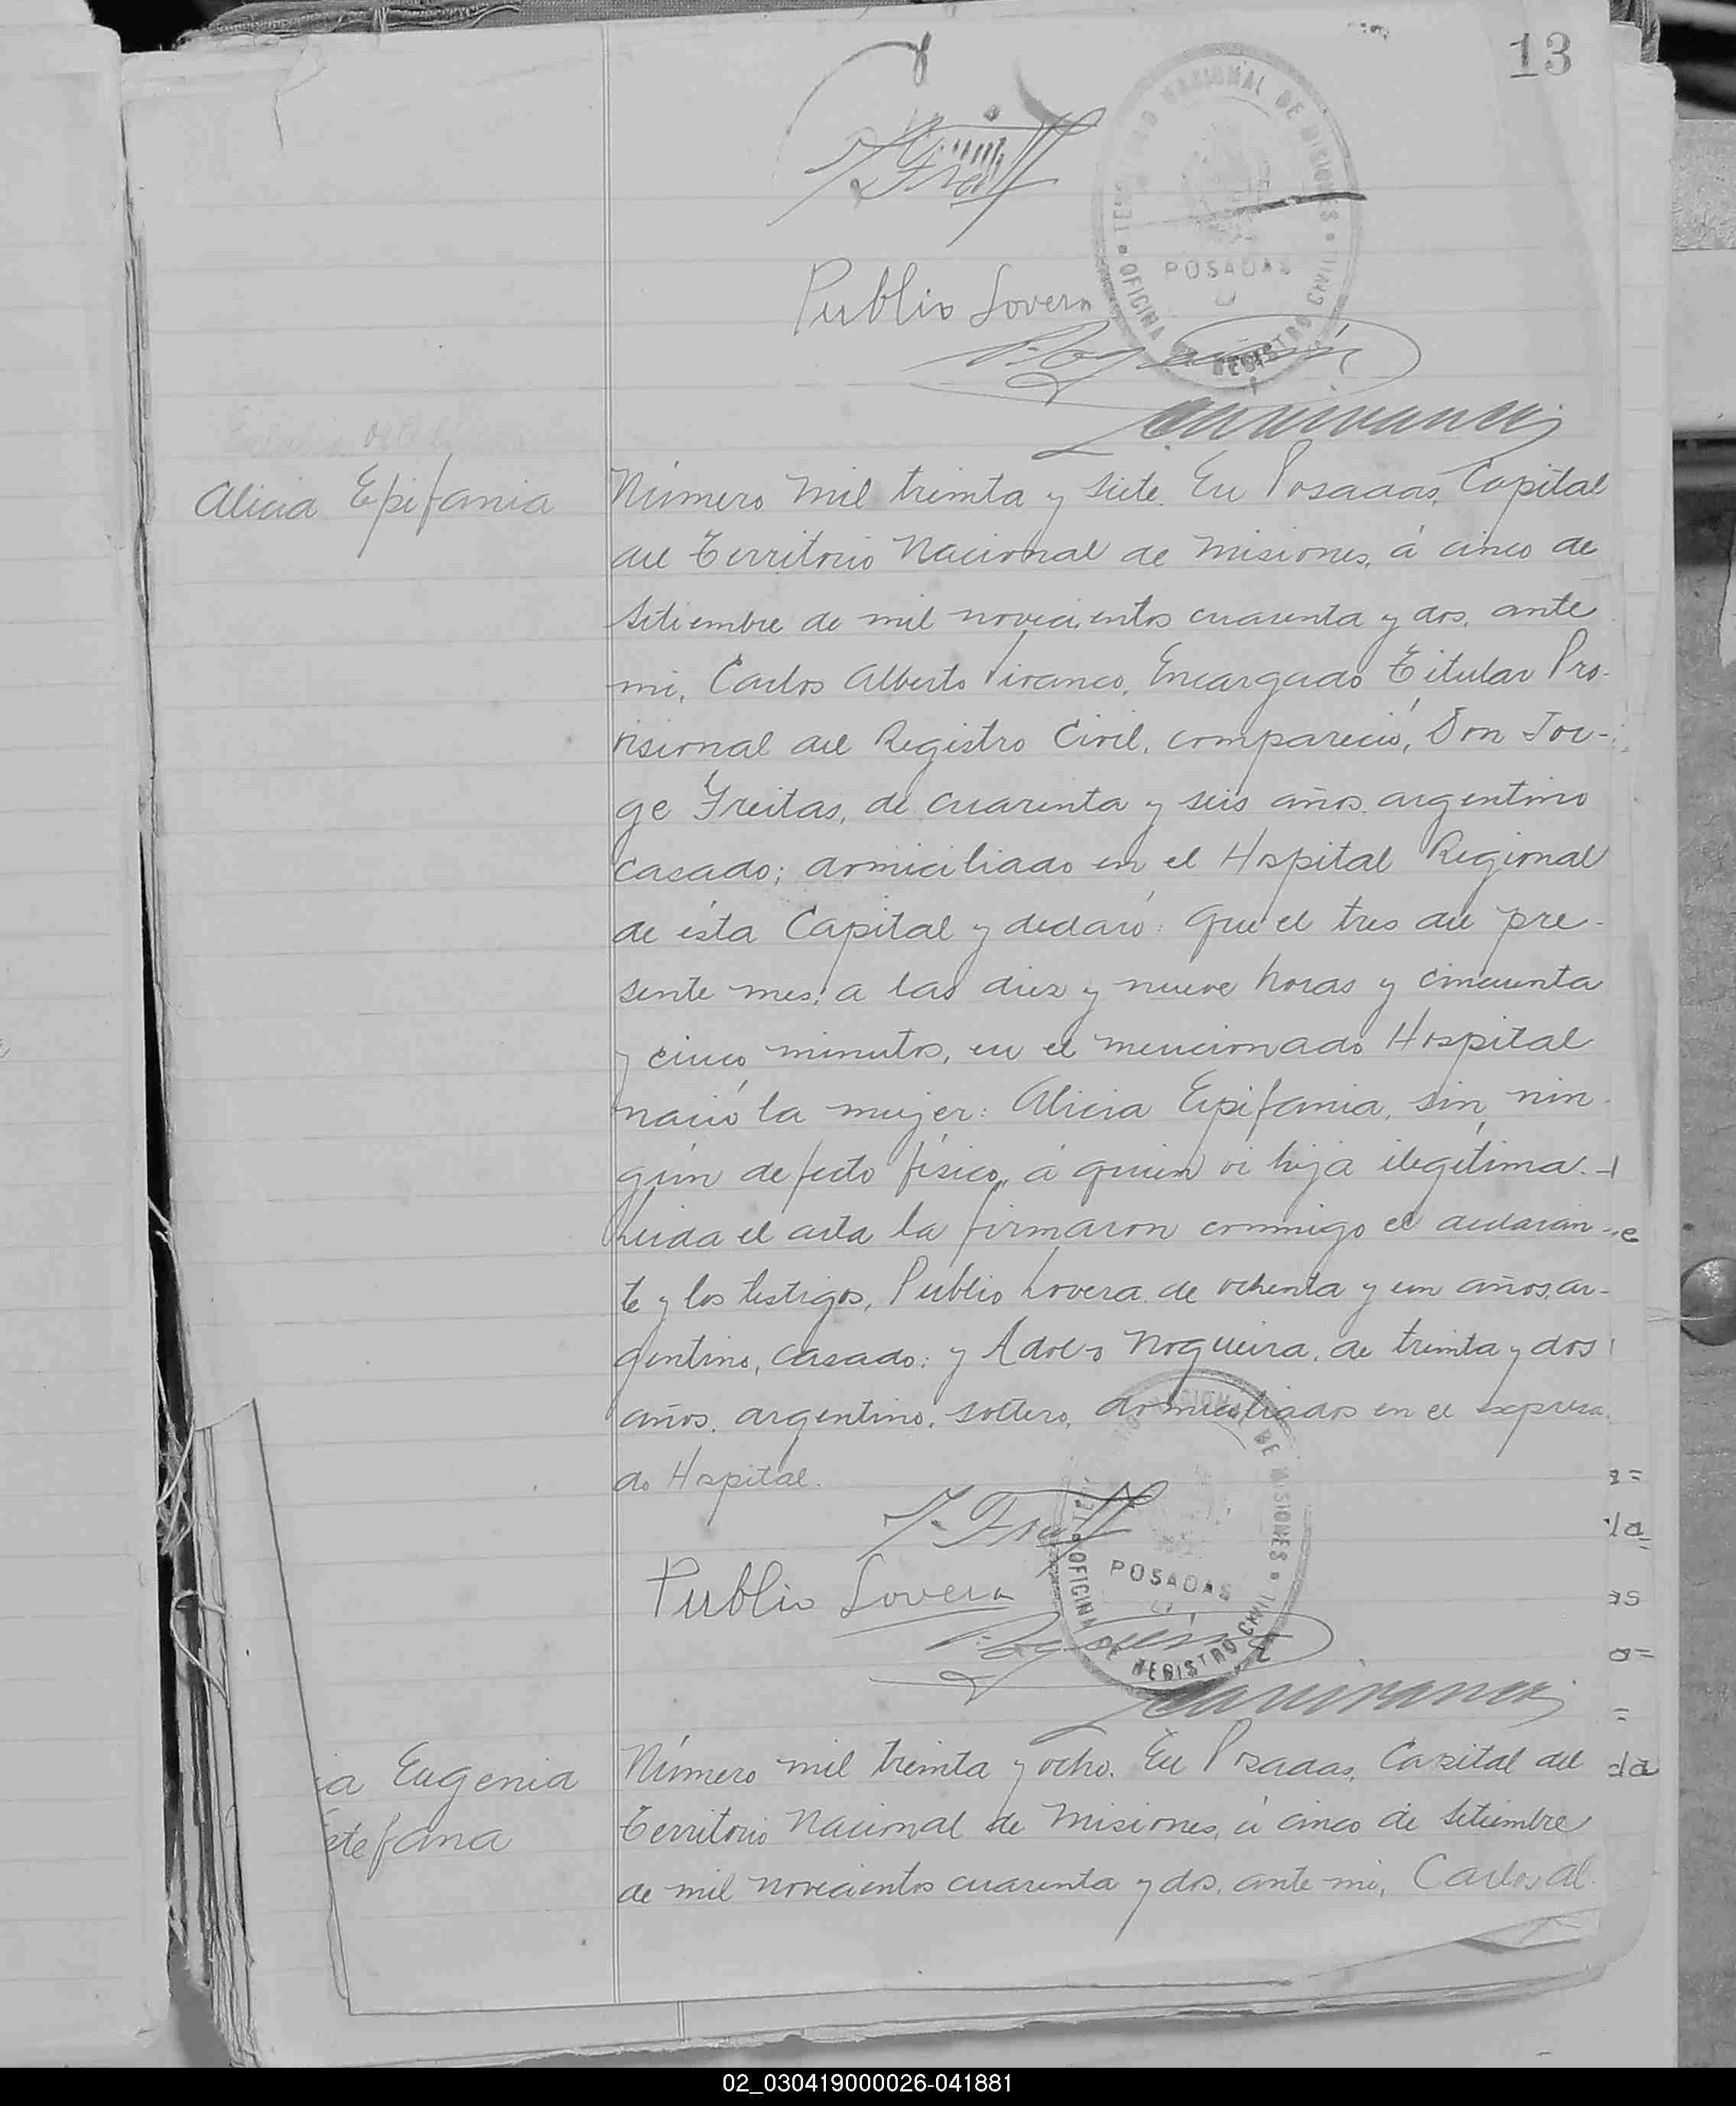 13
TERRITORIO NACIONAL DE MISIONES
POSADAS
OFICINA DE REGISTRO CIVIL
Publio Lovera
Alicia Epifania
Número mil treinta y siete. En Posadas, Capital
del Territorio Nacional de Misiones, á cinco de
Setiembre de mil novecientos cuarenta y dos, ante
mi, Carlos Alberto Vivanco, Encargado Titular Pro-
visional del Registro Civil, compareció, Don Jor-
ge Freitas, de cuarenta y seis años, argentino
casado; domiciliado en el Hospital Regional
de ésta Capital y declaró: Que el tres del pre-
sente mes, a las diez y nueve horas y cincuenta
y cinco minutos, en el mencionado Hospital
nació la mujer: Alicia Epifania, sin nin-
gún defecto físico, á quien vi hija ilegítima.-
Leida el acta la firmaron conmigo el declaran-
te y los testigos, Publio Lovera de ochenta y un años, ar-
gentino, casado; y Nogueira, de treinta y dos
años, argentino, soltero, domiciliados en el expresa-
do Hospital.
Publio Lovera
NACIONAL DE MISIONES
POSADAS
OFICINA DE REGISTRO CIVIL
ia Eugenia
stefana
Número mil treinta y ocho. En Posadas, Capital del
Territorio Nacional de Misiones, á cinco de Setiembre
de mil novecientos cuarenta y dos, ante mi, Carlos Al-
02_030419000026-041881